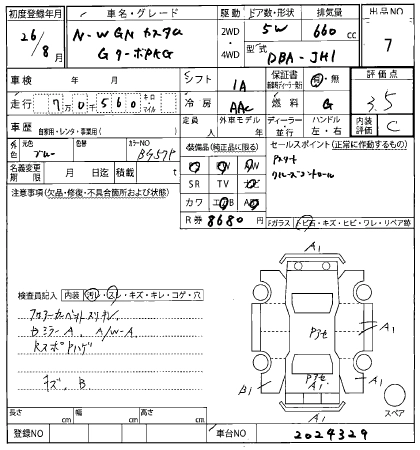 初度登録年月
車名・グレード
駆動
ドア数・形状
排気量
出品NO
26/8月
N-WGN カスタム
Gターボ PKG
2WD
・
4WD
5W
660 cc
型式
DBA-JH1
7
車検
年 月
シフト
IA
保証書
有・無
評価点
走行
7万0千560
キロ
マイル
冷房
AAC
燃料
G
3.5
車歴
自家用・レンタ・事業用( )
定員
人
外車モデル
年
ディーラー
並行
ハンドル
左・右
内装評価
C
色
元色
ブルー
色替
カラーNO
B575P
装備品(純正品に限る)
セールスポイント(正常に作動するもの)
名義変更期限
月 日迄
積載
t
SR TV ナビ
カワ エアB AW
R券 8680 円
注意事項(欠品・修復・不具合箇所および状態)
Fガラス トビ石・キズ・ヒビ・ワレ・リペア跡
A1
検査員記入
内装
汚レ・スレ・キズ・キレ・コゲ・穴
フロアーカーペットスリキレ
ミラーA. A/W-A
キズ. B
Pアセ
Pアセ
A1
B1
A1
A1
A1
スペア
長さ cm
幅 cm
高さ cm
登録NO
車台NO
2024329